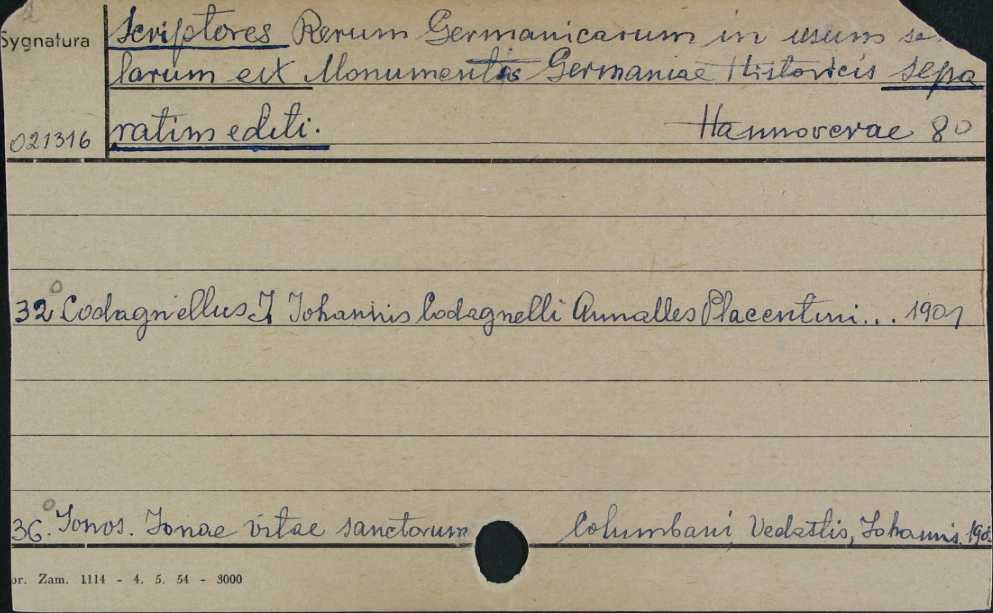 Sygnatura
021316
Scriptores Rerum Germanicarum in usum
larum ex Monumentis Germaniae Historicis sepa
ratim editi. Hannoverae 80
32 Codagnellus J. Johannis Codagnelli Annalles Placentini... 1901
36. Ionos. Ionae vitae sanctorum Columbani, Vedastis, Johannis. 190
or. Zam. 1114 - 4. 5. 54 - 3000